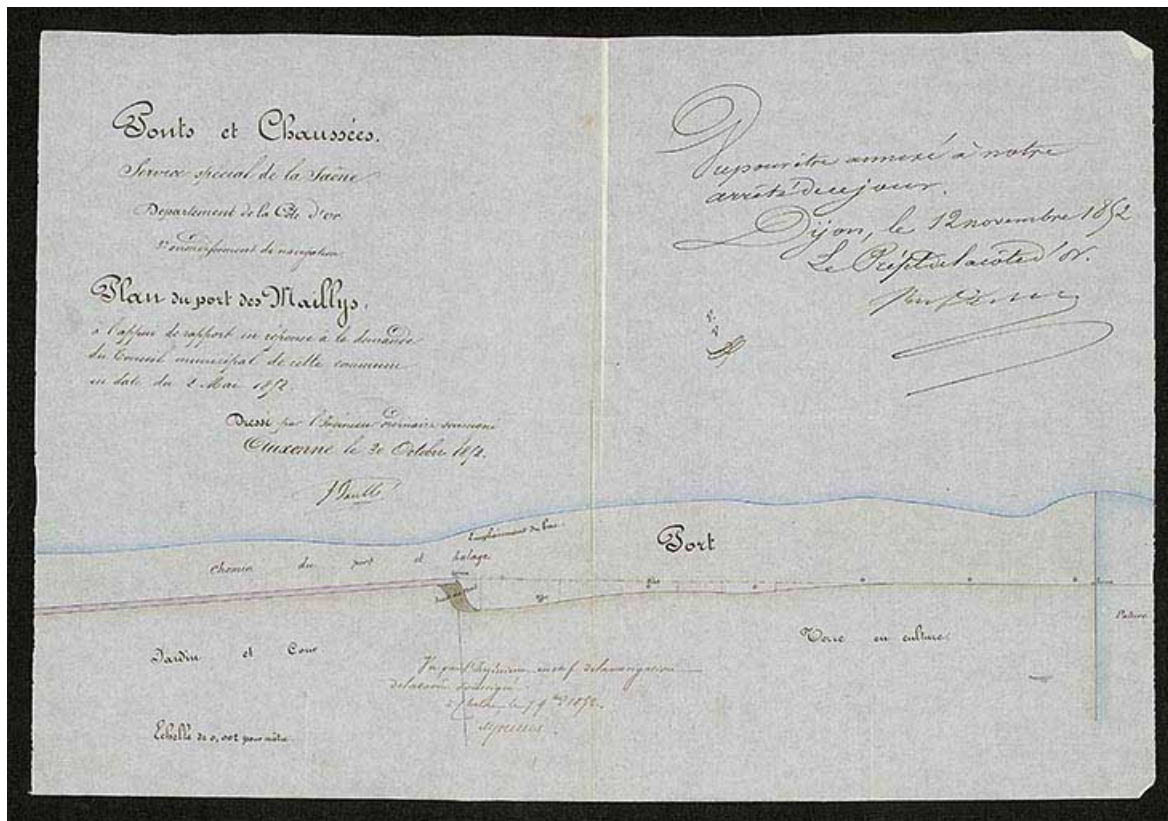 Ponts et Chaussées.
Service spécial de la Saône
Département de la Côte d'or
arrondissement de navigation
Plan du port des Maillys.
à l'appui de rapport en réponse à la demande
du Conseil municipal de cette commune
en date du 2 Mai 1852.
Dressé par l'Ingénieur ordinaire soussigné
Auxonne le 30 Octobre 1852.
Vu pour être annexé à notre
arrêté de ce jour.
Dijon, le 12 novembre 1852
Le Préfet de la côte d'or.
Emplacement du bac
Port
Chemin du port et halage
Jardin et Cour
Terre en culture.
Pature
Vu par l'Ingénieur en chef de la navigation
de la Saône soussigné
Echelle de 0,002 pour mètre